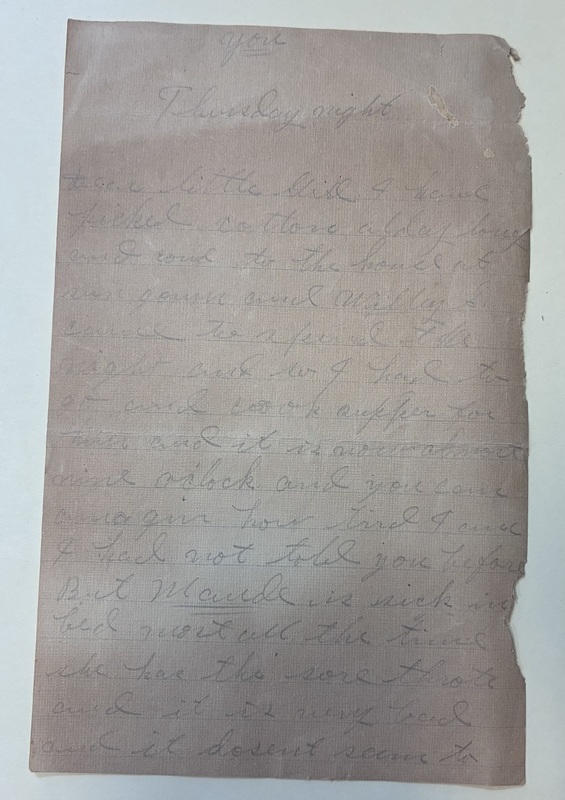 you
Thursday night
dear little Girl I have
picked cotton alday long
and come to the house at
sun down and
came to spend the
night and so I had to
go and cook supper for
them and it is now about
nine oclock and you can
amagin how tird I am
I had not told you before
But Maude is sick in
bed most all the time
she has the sore throte
and it is very bad
and it dosent seam to